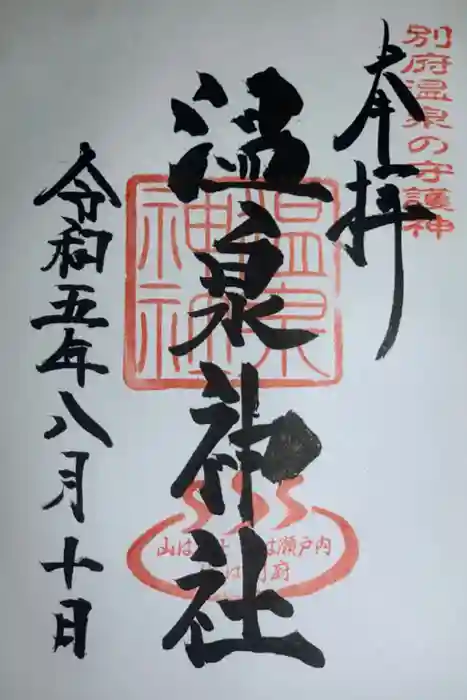 別府温泉の守護神
奉拝
温泉神社
温泉
神社
山は は瀬戸内
は 府
令和五年八月十日